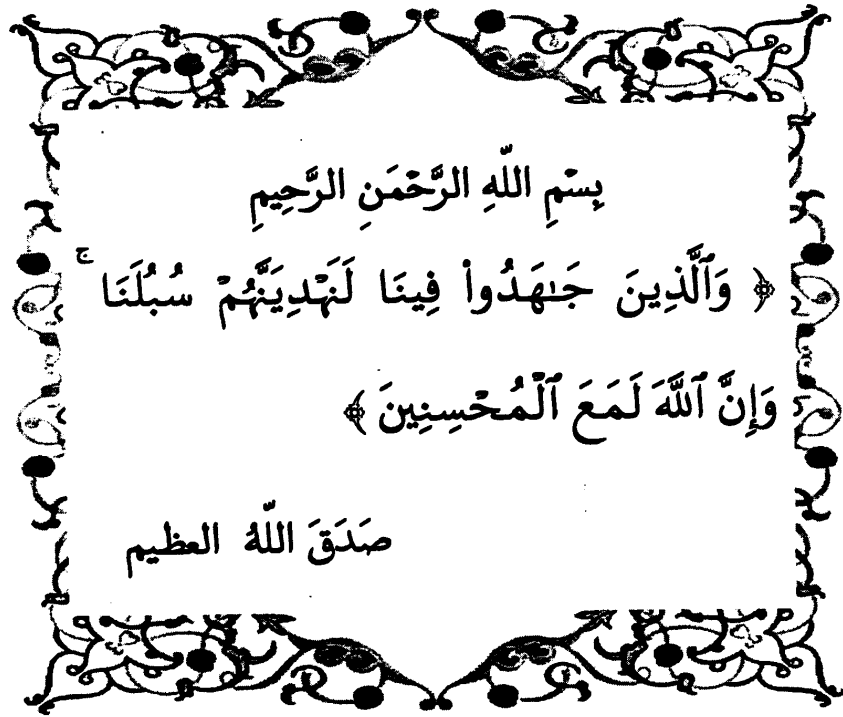 بِسْمِ اللّهِ الرَّحْمَنِ الرَّحِيمِ
﴿ وَٱلَّذِينَ جَـٰهَدُوا۟ فِينَا لَنَهْدِيَنَّهُمْ سُبُلَنَا ۚ
وَإِنَّ ٱللَّهَ لَمَعَ ٱلْمُحْسِنِينَ ﴾
صَدَقَ اللّهُ العظيم